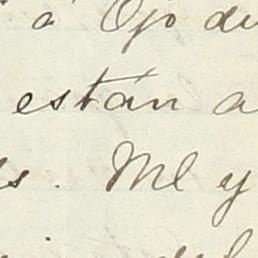 a Ojo du
están a
s. Me y